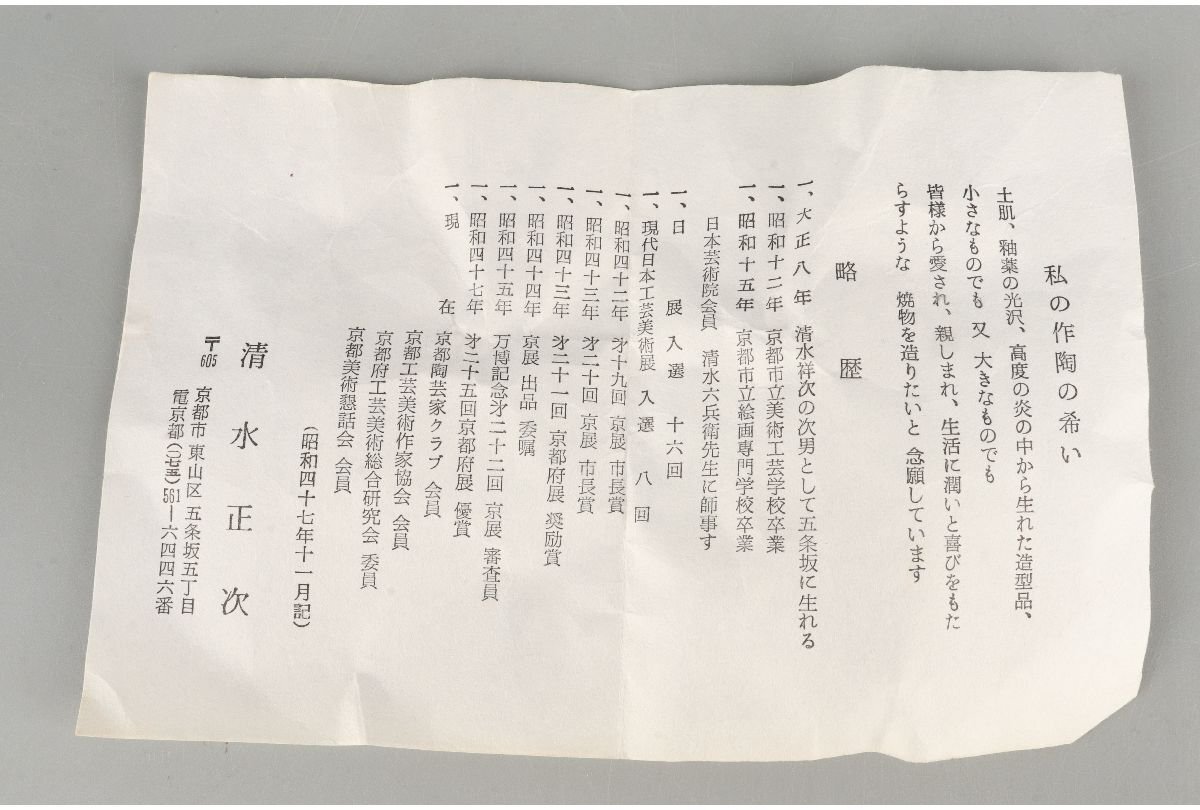 私の作陶の希い
土肌、釉薬の光沢、高度の炎の中から生れた造型品、
小さなものでも 又 大きなものでも
皆様から愛され、親しまれ、生活に潤いと喜びをもた
らすような 焼物を造りたいと 念願しています
略歴
一、大正八年 清水祥次の次男として五条坂に生れる
一、昭和十二年 京都市立美術工芸学校卒業
一、昭和十五年 京都市立絵画専門学校卒業
日本芸術院会員 清水六兵衛先生に師事す
一、日展入選 十六回
一、現代日本工芸美術展 入選 八回
一、昭和四十二年 才十九回 京展 市長賞
一、昭和四十三年 才二十回 京展 市長賞
一、昭和四十三年 才二十一回 京都府展 奨励賞
一、昭和四十四年 京展 出品 委嘱
一、昭和四十五年 万博記念才二十二回 京展 審査員
一、昭和四十七年 才二十五回京都府展 優賞
一、現在 京都陶芸家クラブ 会員
京都工芸美術作家協会 会員
京都府工芸美術総合研究会 委員
京都美術懇話会 会員
(昭和四十七年十一月記)
清水正次
〒605 京都市東山区五条坂五丁目
電京都(〇七五)561―六四四六番